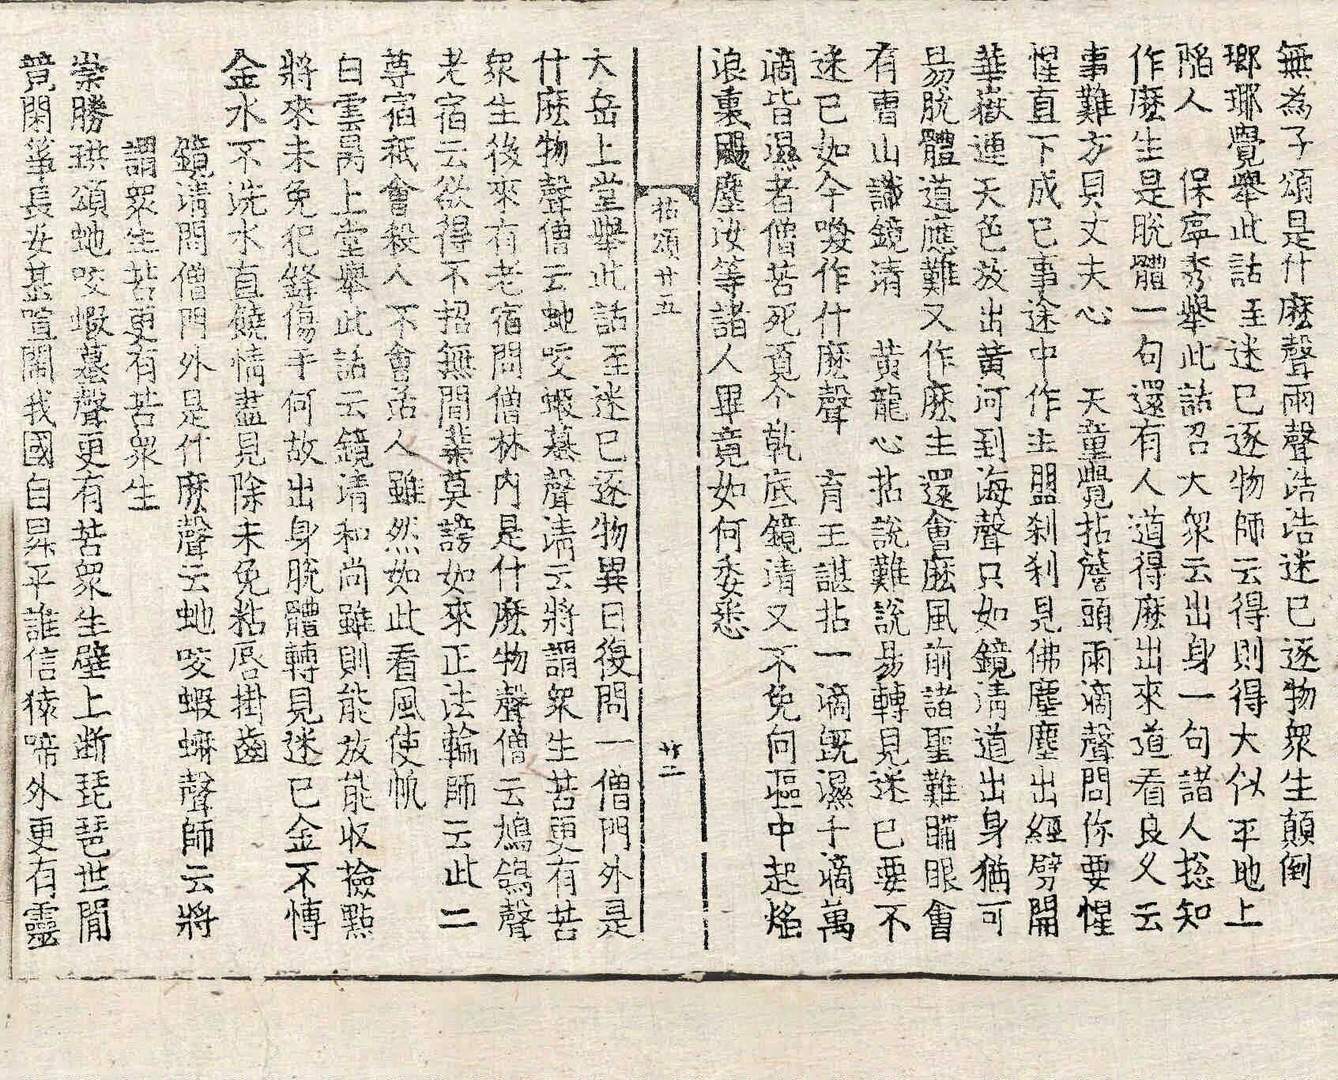 無為子頌是什麽聲雨聲浩浩迷已逐物衆生顛倒
瑯琊覺舉此話至迷已逐物師云得則得大似平地上
陷人　保寧秀舉此話召大衆云出身一句諸人捴知
作麽生是脫體一句還有人道得麽出來道看良久云
事難方見丈夫心　天童覺拈簷頭雨滴聲問你要惺
惺直下成已事途中作主盟剎剎見佛塵塵出經劈開
華嶽連天色放出黃河到海聲只如鏡清道出身猶可
易脫體道應難又作麽生還會麽風前諸聖難瞞眼會
有曹山識鏡清　黃龍心拈說難說易轉見迷已要不
迷已如今喚作什麽聲　育王諶拈一滴旣濕千滴萬
滴皆濕者僧苦死覓个乾底鏡清又不免向漚中起焰
浪裏颺塵汝等諸人畢竟如何委悉
拈頌廿五
廿二
大岳上堂舉此話至迷已逐物異日復問一僧門外是
什麽物聲僧云虵咬蝦蟇聲淸云將謂衆生苦更有苦
衆生後來有老宿問僧林內是什麽物聲僧云鳩鴿聲
老宿云欲得不招無間業莫謗如來正法輪師云此二
尊宿秖會殺人不會活人雖然如此看風使帆
白雲昺上堂舉此話云鏡清和尚雖則能放能收撿點
將來未免犯鋒傷手何故出身脫體轉見迷已金不愽
金水不洗水直饒情盡見除未免粘唇掛齒
鏡清問僧門外是什麽聲云虵咬蝦蟆聲師云將
謂衆生苦更有苦衆生
崇勝珙頌虵咬蝦蟇聲更有苦衆生壁上断琵琶世間
竟閑箏長安甚喧鬧我國自昇平誰信猿啼外更有靈